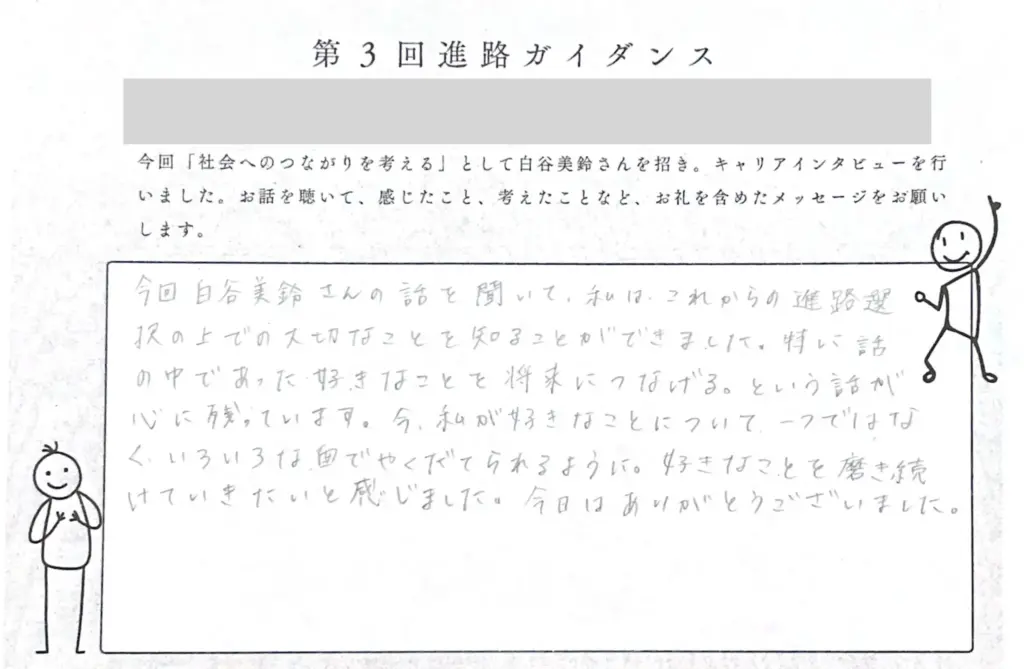 第3回進路ガイダンス
今回「社会へのつながりを考える」として白谷美鈴さんを招き。キャリアインタビューを行
いました。お話を聴いて、感じたこと、考えたことなど、お礼を含めたメッセージをお願い
します。
今回白谷美鈴さんの話を聞いて、私は、これからの進路選
択の上での大切なことを知ることができました。特に話
の中であった好きなことを将来につなげる。という話が
心に残っています。今、私が好きなことについて、一つではな
く、いろいろな面でやくだてられるように。好きなことを磨き続
けていきたいと感じました。今日はありがとうございました。